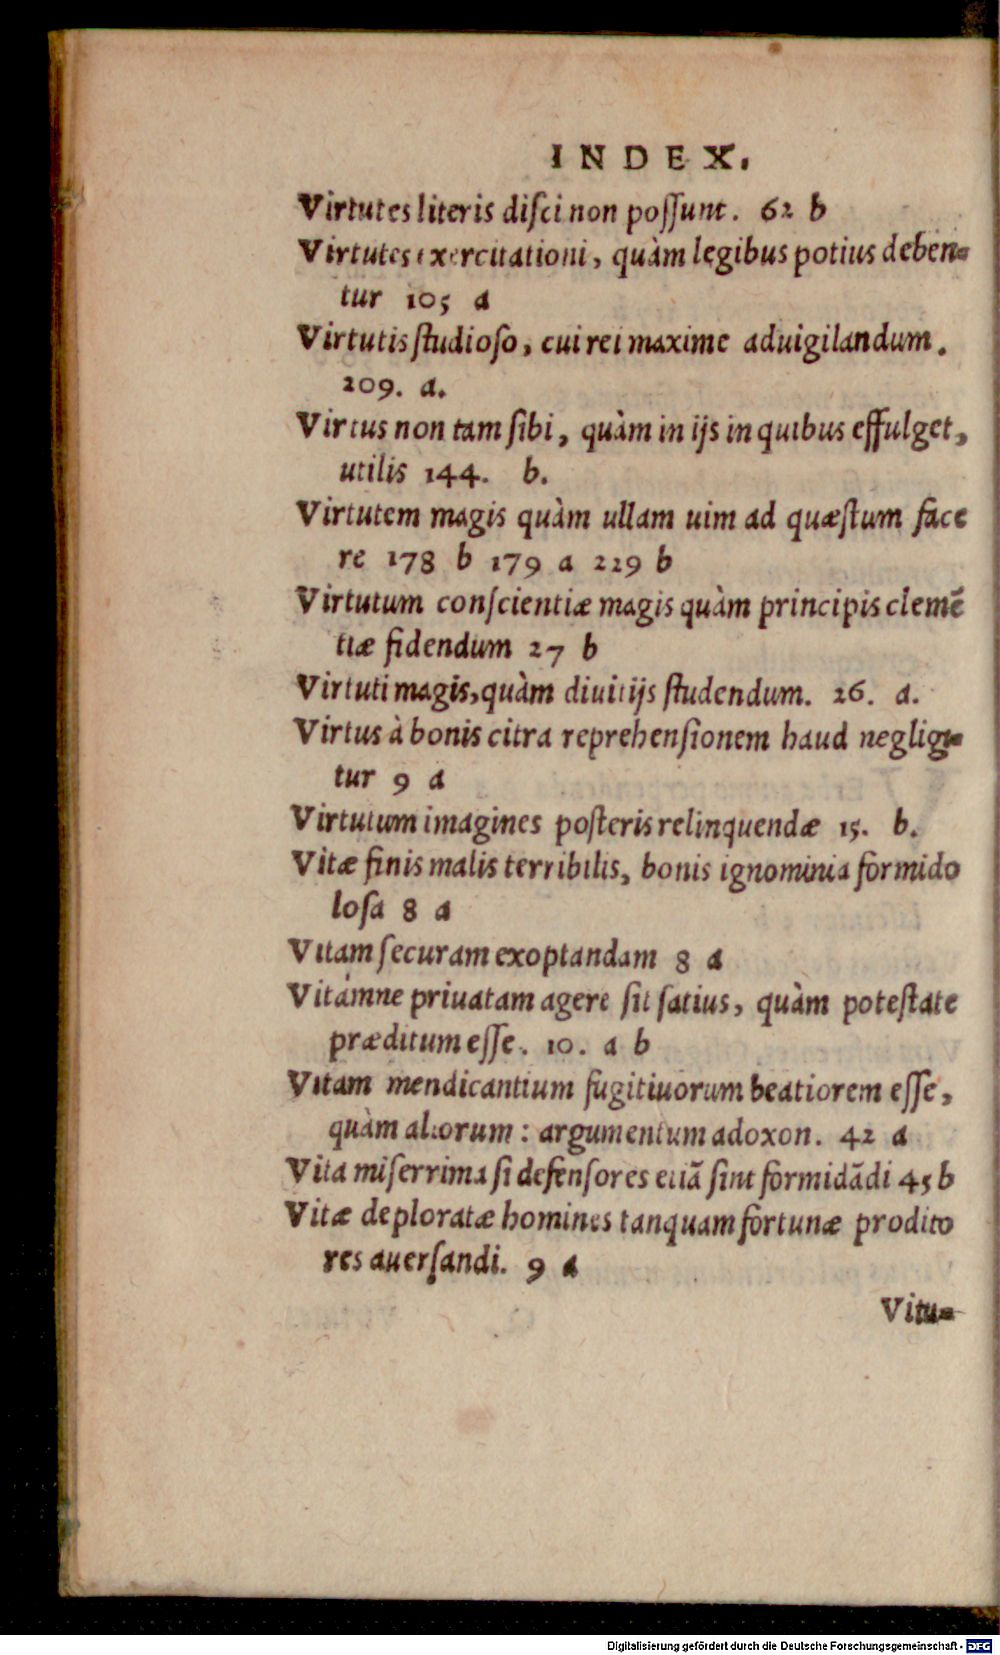 INDEX.
Virtutes literis diſci non poſſunt. 62 b
Virtutes exercitationi, quàm legibus potius deben-
tur 105 a
Virtutis ſtudioſo, cui rei maxime aduigilandum.
209. a.
Virtus non tam ſibi, quàm in ijs in quibus effulget,
utilis 144. b.
Virtutem magis quàm ullam uim ad quæſtum face
re 178 b 179 a 229 b
Virtutum conſcientiæ magis quàm principis clemẽ
tiæ fidendum 27 b
Virtuti magis, quàm diuitijs ſtudendum. 26. a.
Virtus à bonis citra reprehenſionem haud negligi-
tur 9 a
Virtutum imagines poſteris relinquendæ 15. b.
Vitæ finis malis terribilis, bonis ignominia formido
loſa 8 a
Vitam ſecuram exoptandam 8 a
Vitámne priuatam agere ſit ſatius, quàm poteſtate
præditum eſſe. 10. a b
Vitam mendicantium fugitiuorum beatiorem eſſe,
quàm aliorum: argumentum adoxon. 42 a
Vita miſerrima ſi defenſores etiã ſint formidãdi 45 b
Vitæ deploratæ homines tanquam fortunæ prodito
res auerſandi. 9 a
Vitu-
Digitalisierung gefördert durch die Deutsche Forschungsgemeinschaft - DFG